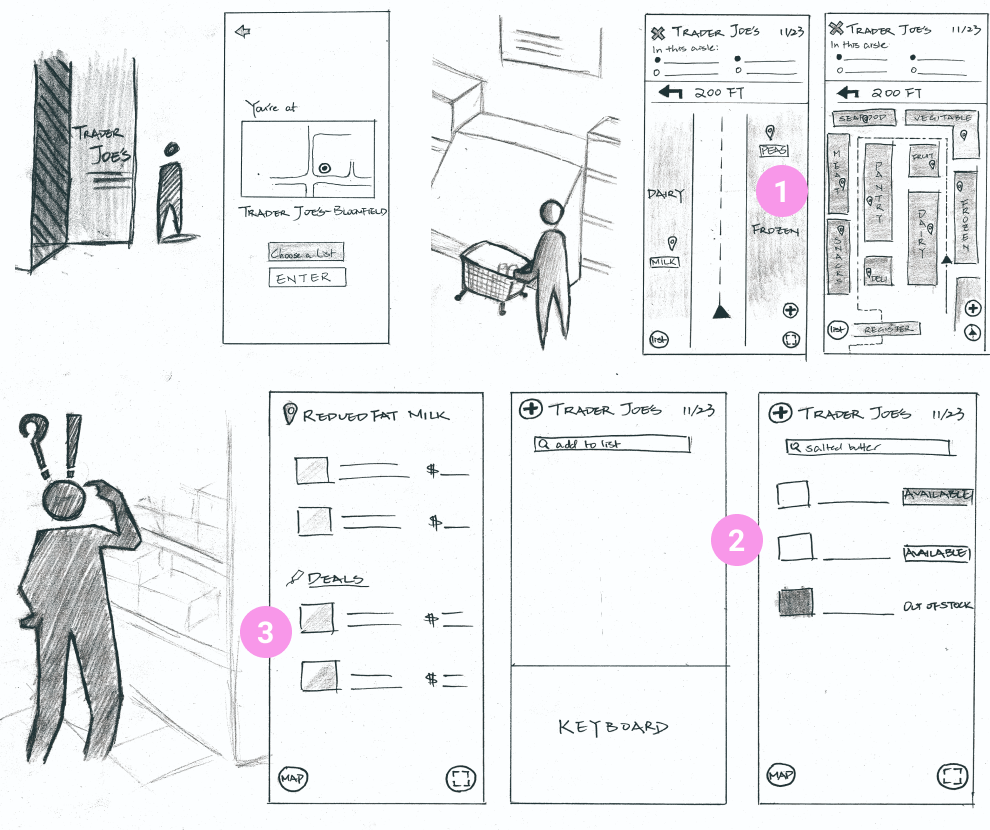 TRADER
JOE'S
You're at
TRADER JOE'S-BLOOMFIELD
Choose a List
ENTER
TRADER JOE'S 11/23
In this aisle:
200 FT
PEAS
DAIRY
1
FROZEN
MILK
list
TRADER JOE'S 11/23
In this aisle
200 FT
SEAFOOD
VEGITABLE
MEAT
PANTRY
FRUIT
DAIRY
FROZEN
SNACKS
DELI
list
REGISTER
?!
REDUED FAT MILK
$
$
DEALS
3
$
$
MAP
TRADER JOE'S 11/23
add to list
KEYBOARD
2
TRADER JOE'S 11/23
salted butter
AVAILABLE
AVAILABLE
OUT OF STOCK
MAP